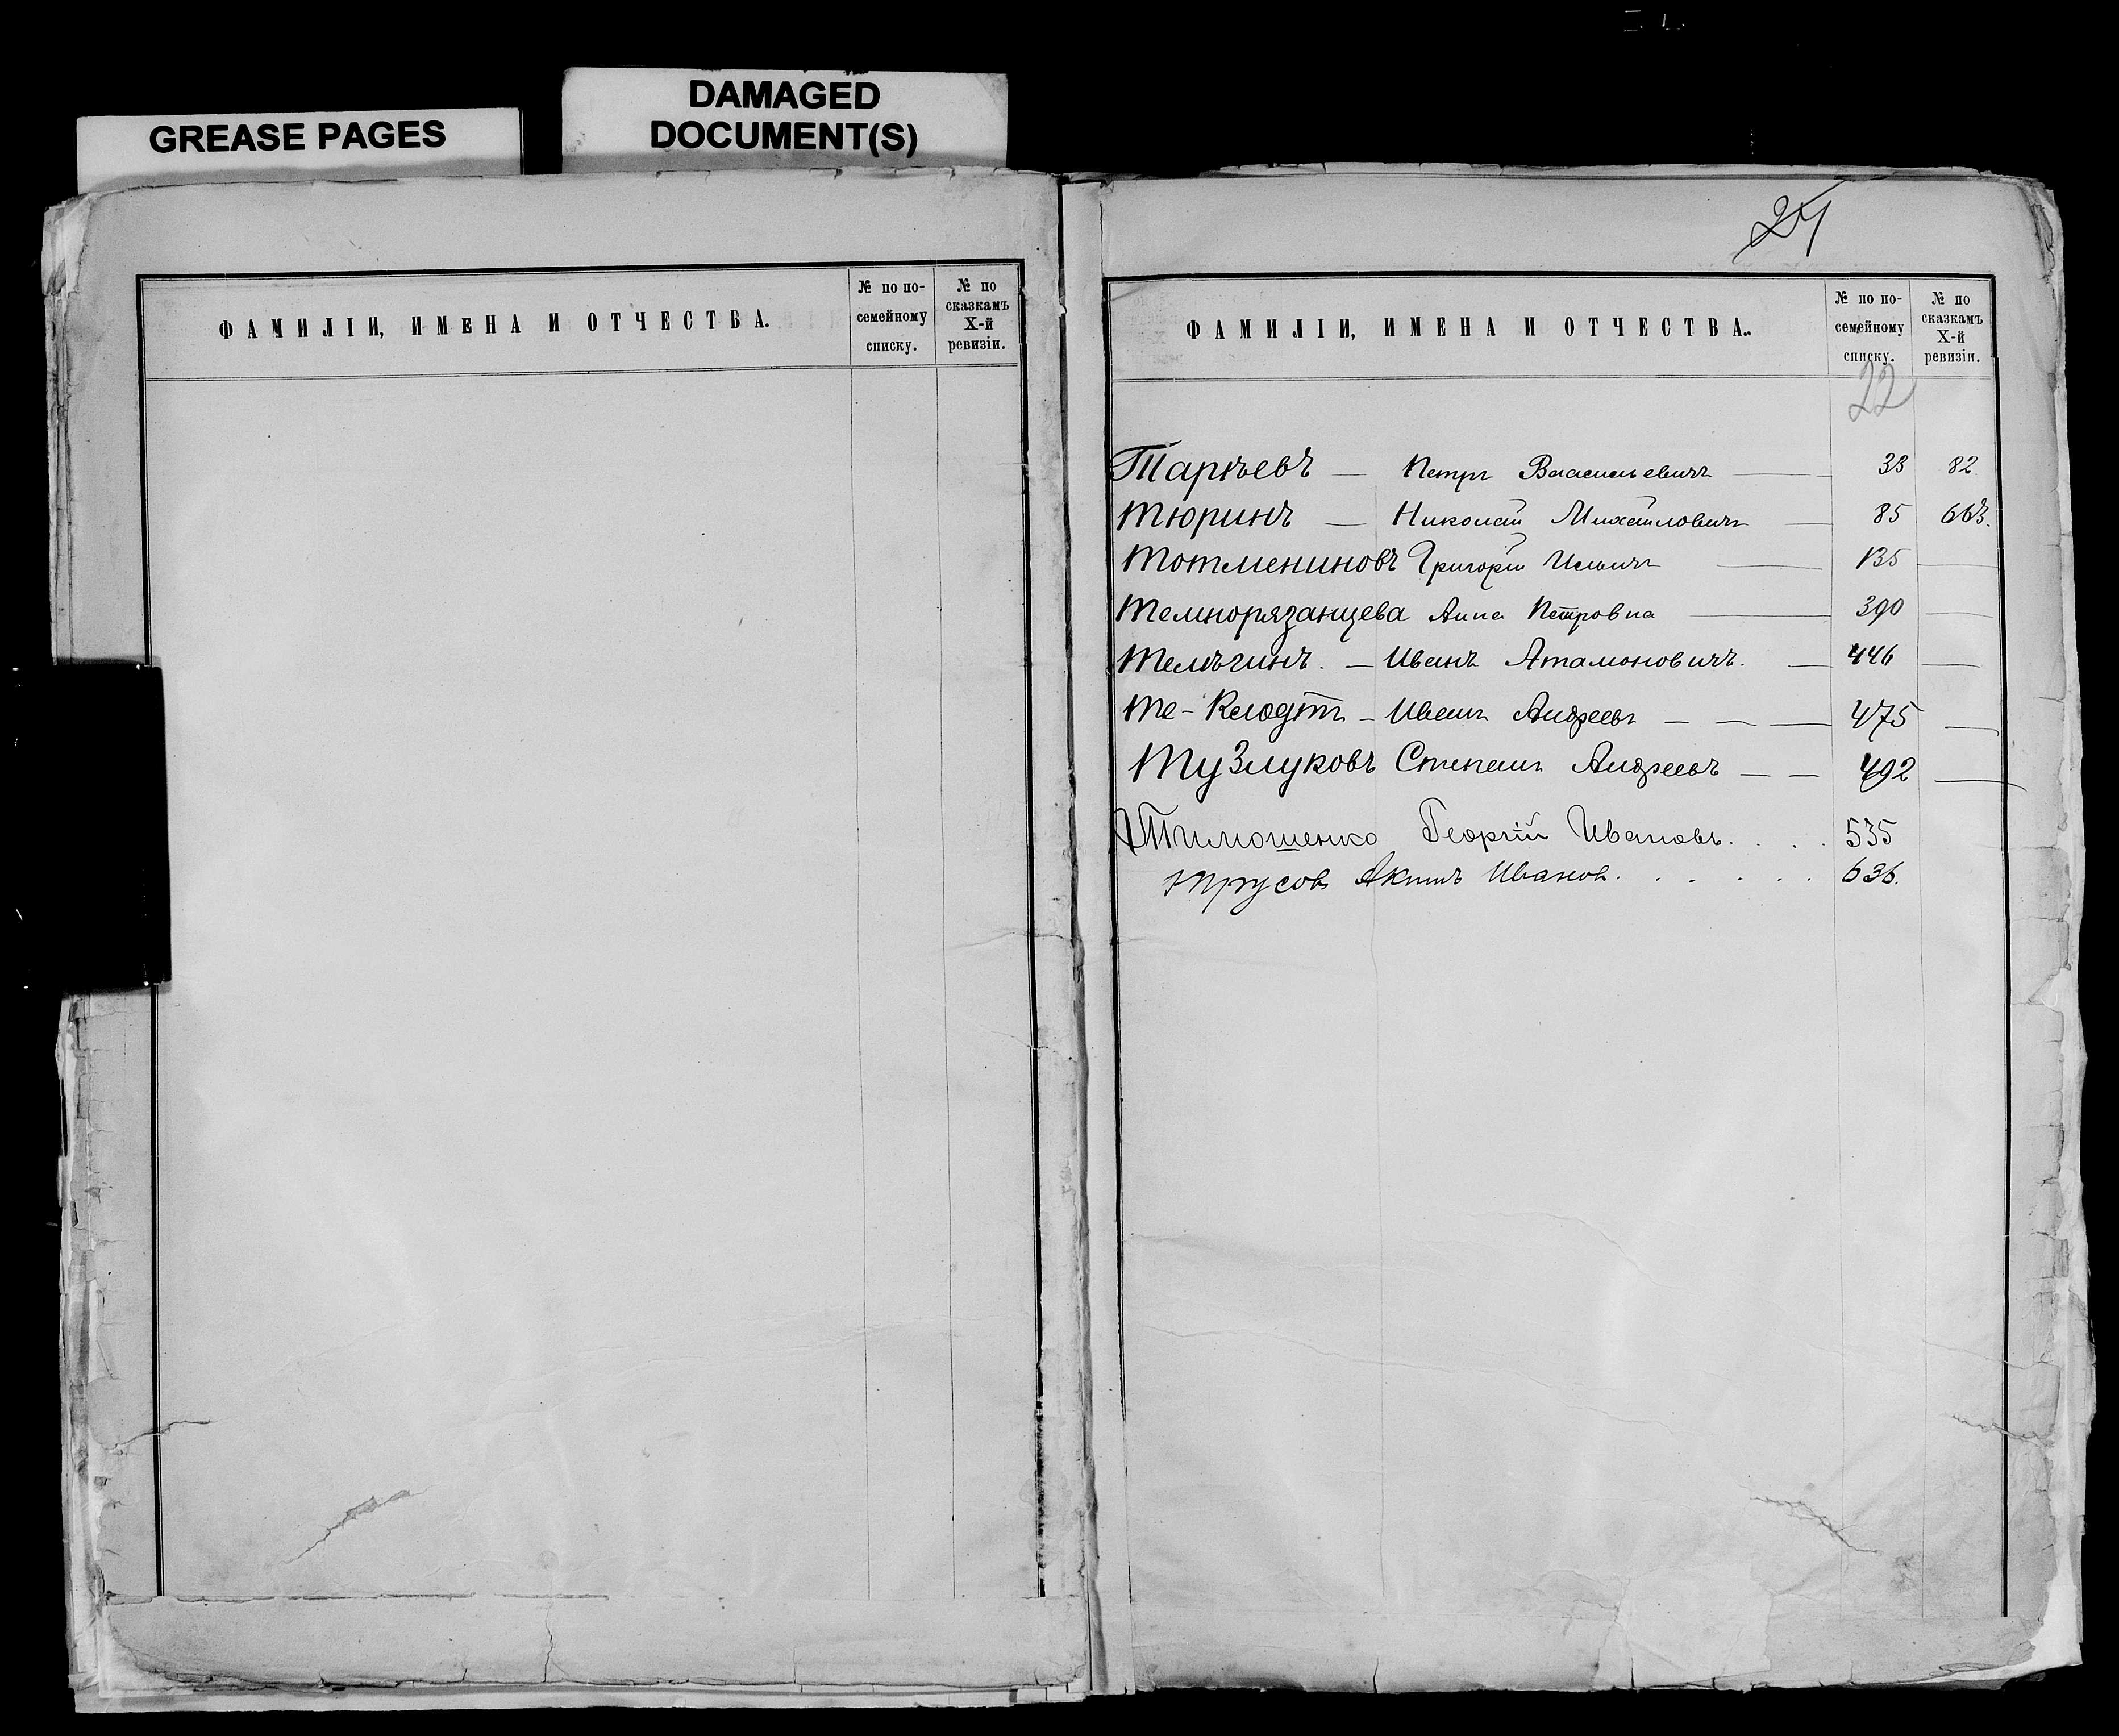 GREASE PAGES
DAMAGED
DOCUMENT(S)
ФАМИЛІИ, ИМЕНА И ОТЧЕСТВА.
№ по по-
семейному
списку.
№ по
сказкамъ
X-й
ревизіи.
24
ФАМИЛІИ, ИМЕНА И ОТЧЕСТВА.
№ по по-
семейному
списку.
№ по
сказкамъ
X-й
ревизіи.
22
— Петръ Васильевичъ — 38 82
Тюринъ — Николай Михайловичъ — 85 663.
Тотмениновъ Григорій Ильичъ — 135 —
Темнорязанцева Анна Петровна — 390 —
Телѣгинъ. — Иванъ Атамоновичъ. — 446 —
Те-Клодтъ — Иванъ Андреевъ — — — 475 —
Тузлуковъ Степанъ Андреевъ — — 492 —
Тимошенко Георгій Ивановъ. . . . 535
Трусовъ Иванов. . . . . . 636.